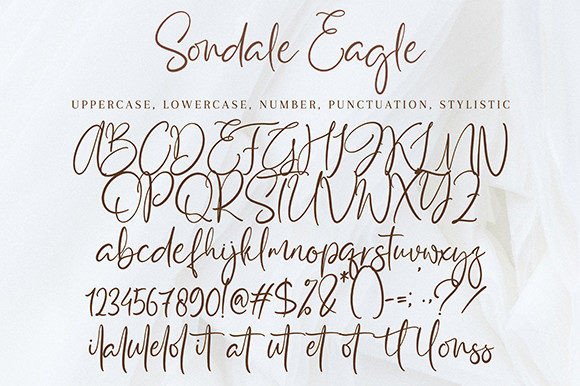 Sondale Eagle
UPPERCASE, LOWERCASE, NUMBER, PUNCTUATION, STYLISTIC
ABCDEFGHIJKLMN
OPQRSTUVWXYZ
abcdefhijklmnopqrstuvwxyz
1234567890!@#$%&*()-=;:.,?/
it at ut et ot tt